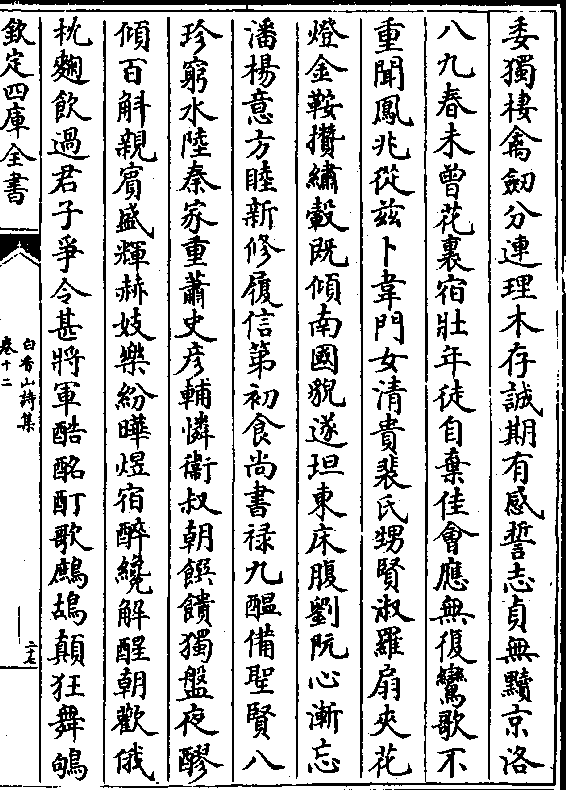 委獨棲禽劒分連理木存誠期有感誓志貞無黷京洛
八九春未曾花裏宿壯年徒自棄佳會應無復鸞歌不
重聞鳳兆從兹卜韋門女清貴裴氏甥賢淑羅扇夾花
燈金鞍攢繡轂既傾南國貌遂坦東床腹劉阮心漸忘
潘楊意方睦新修履信第初食尚書禄九醖備聖賢八
珍窮水陸秦家重蕭史彦輔憐衞叔朝饌饋獨盤夜醪
傾百斛親賓盛輝赫妓樂紛曄煜宿醉纔解酲朝歡俄
枕麴飲過君子爭令甚將軍酷酩酊歌鷓鴣顛狂舞鴝
欽定四庫全書
白香山詩集
卷十二
二十七